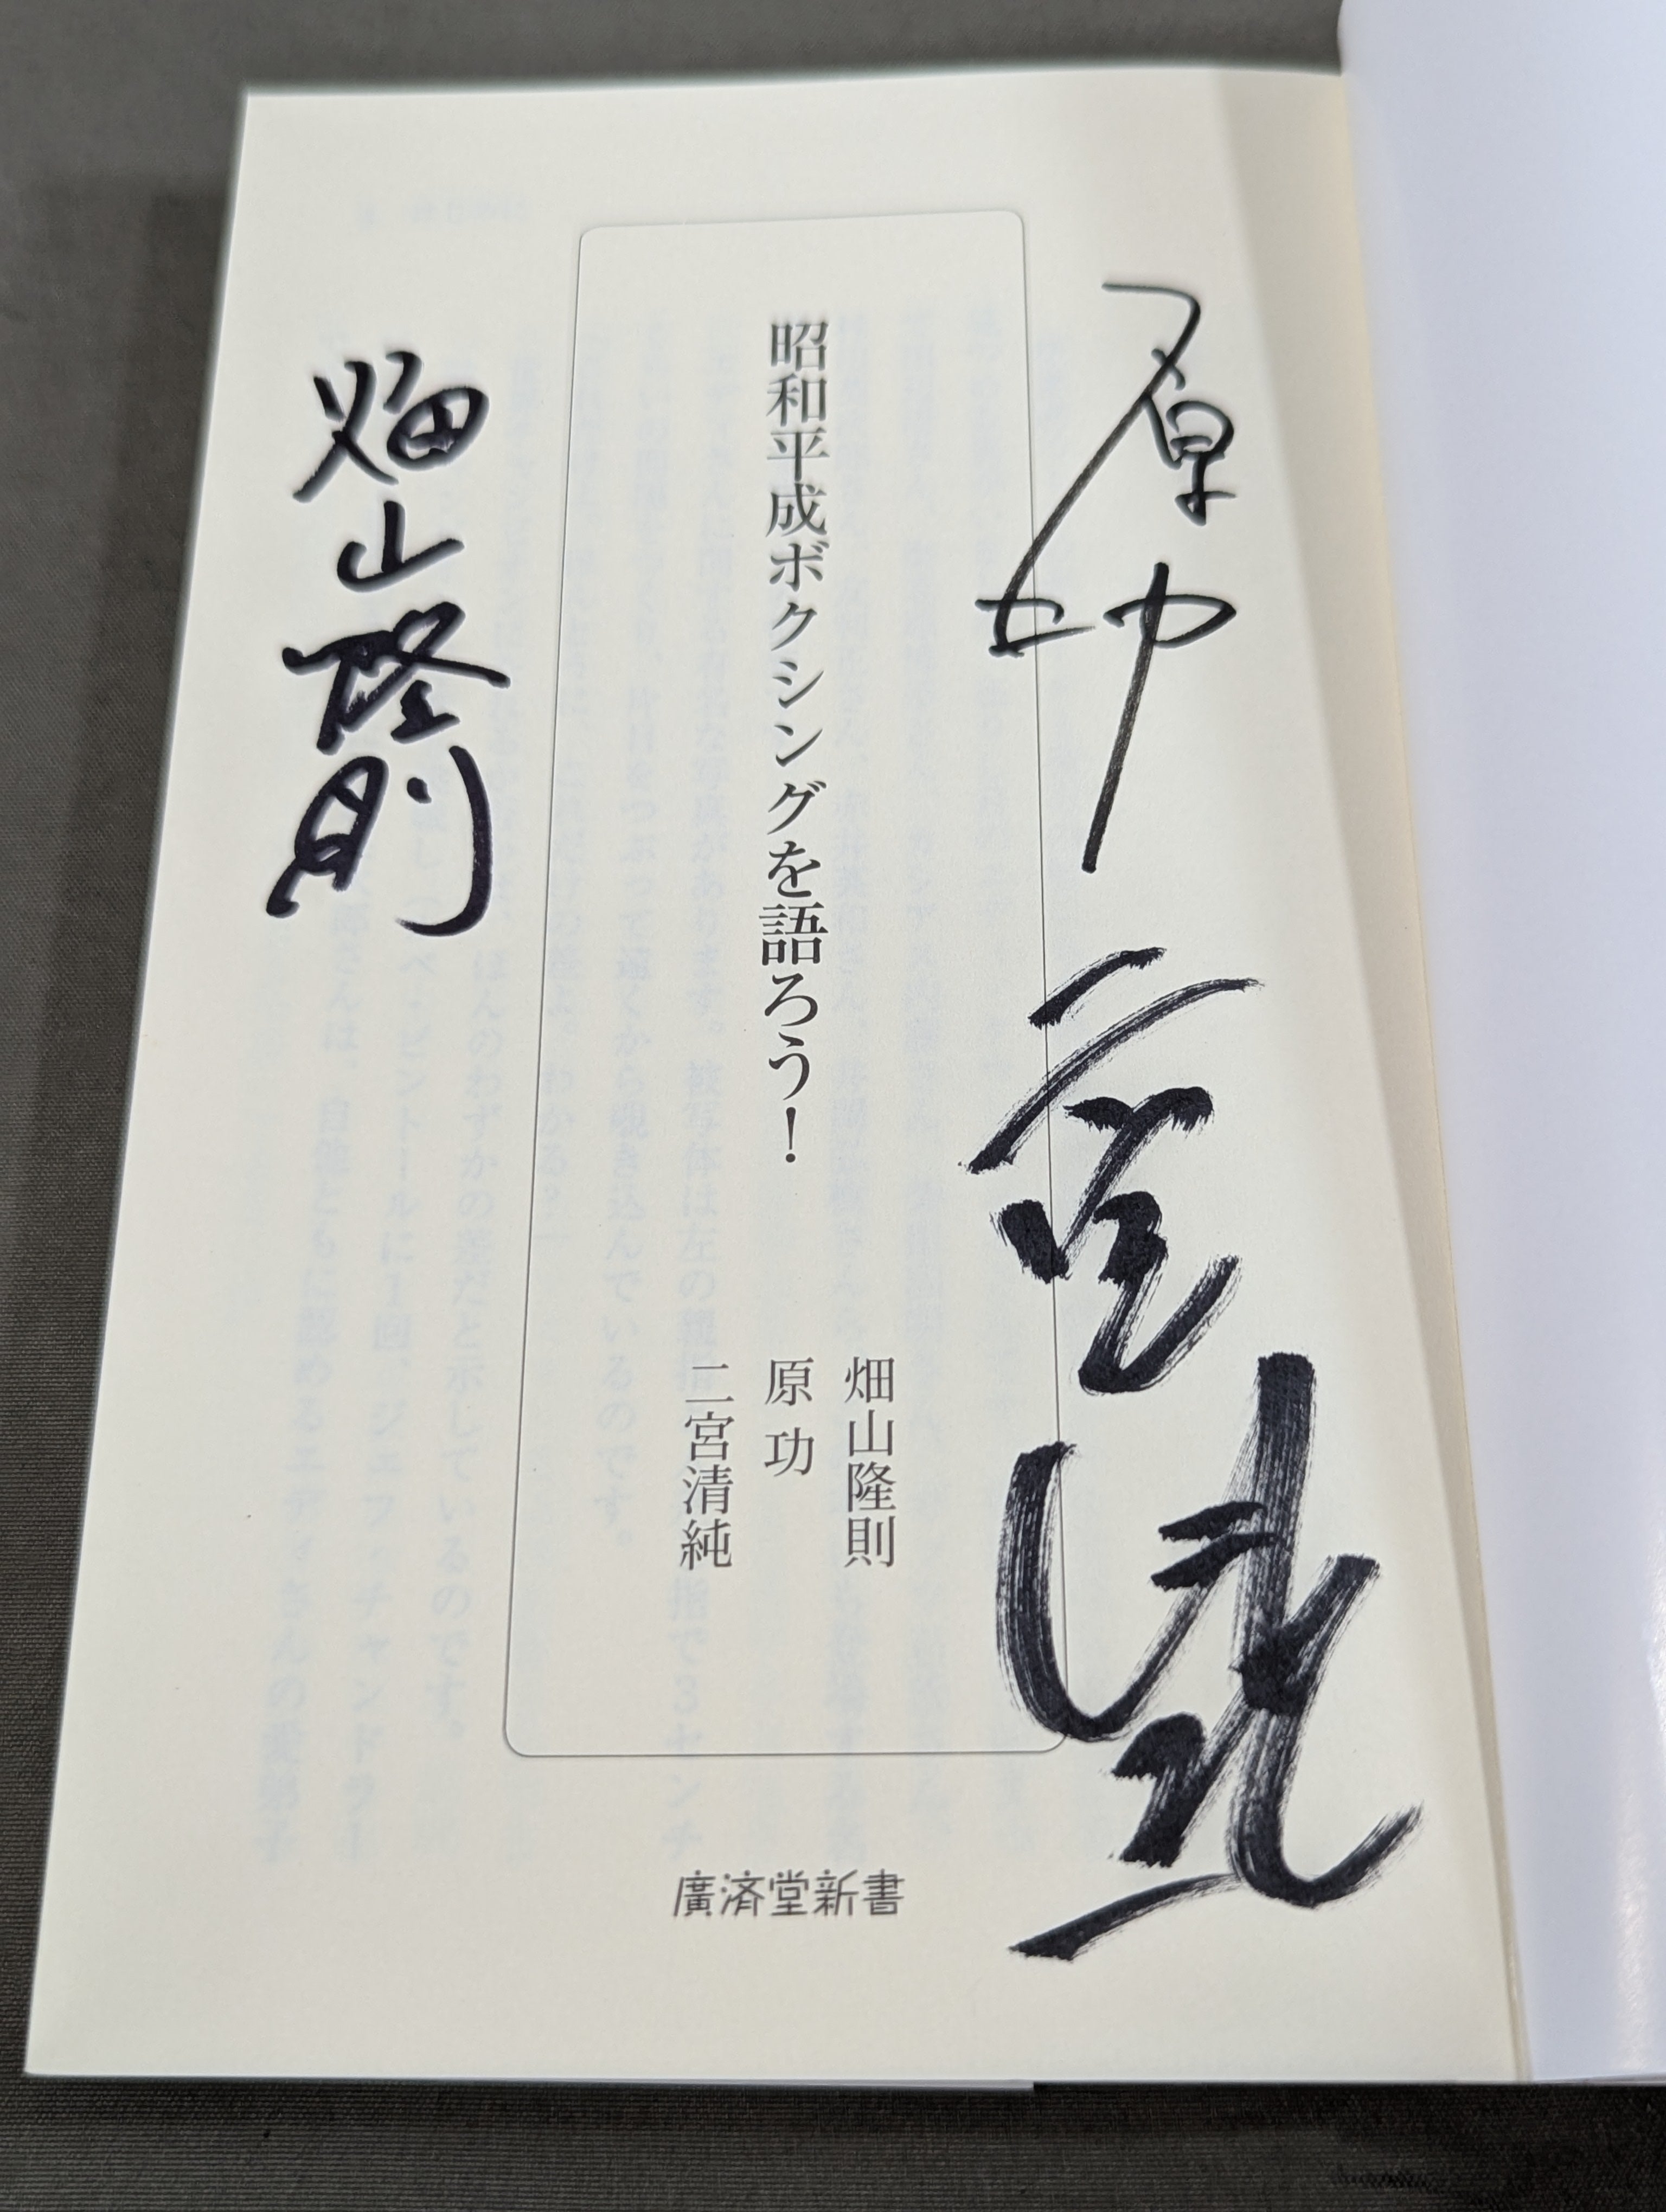 原功
二宮清純
昭和平成ボクシングを語ろう！
畑山隆則
原 功
二宮清純
廣済堂新書
畑山隆則